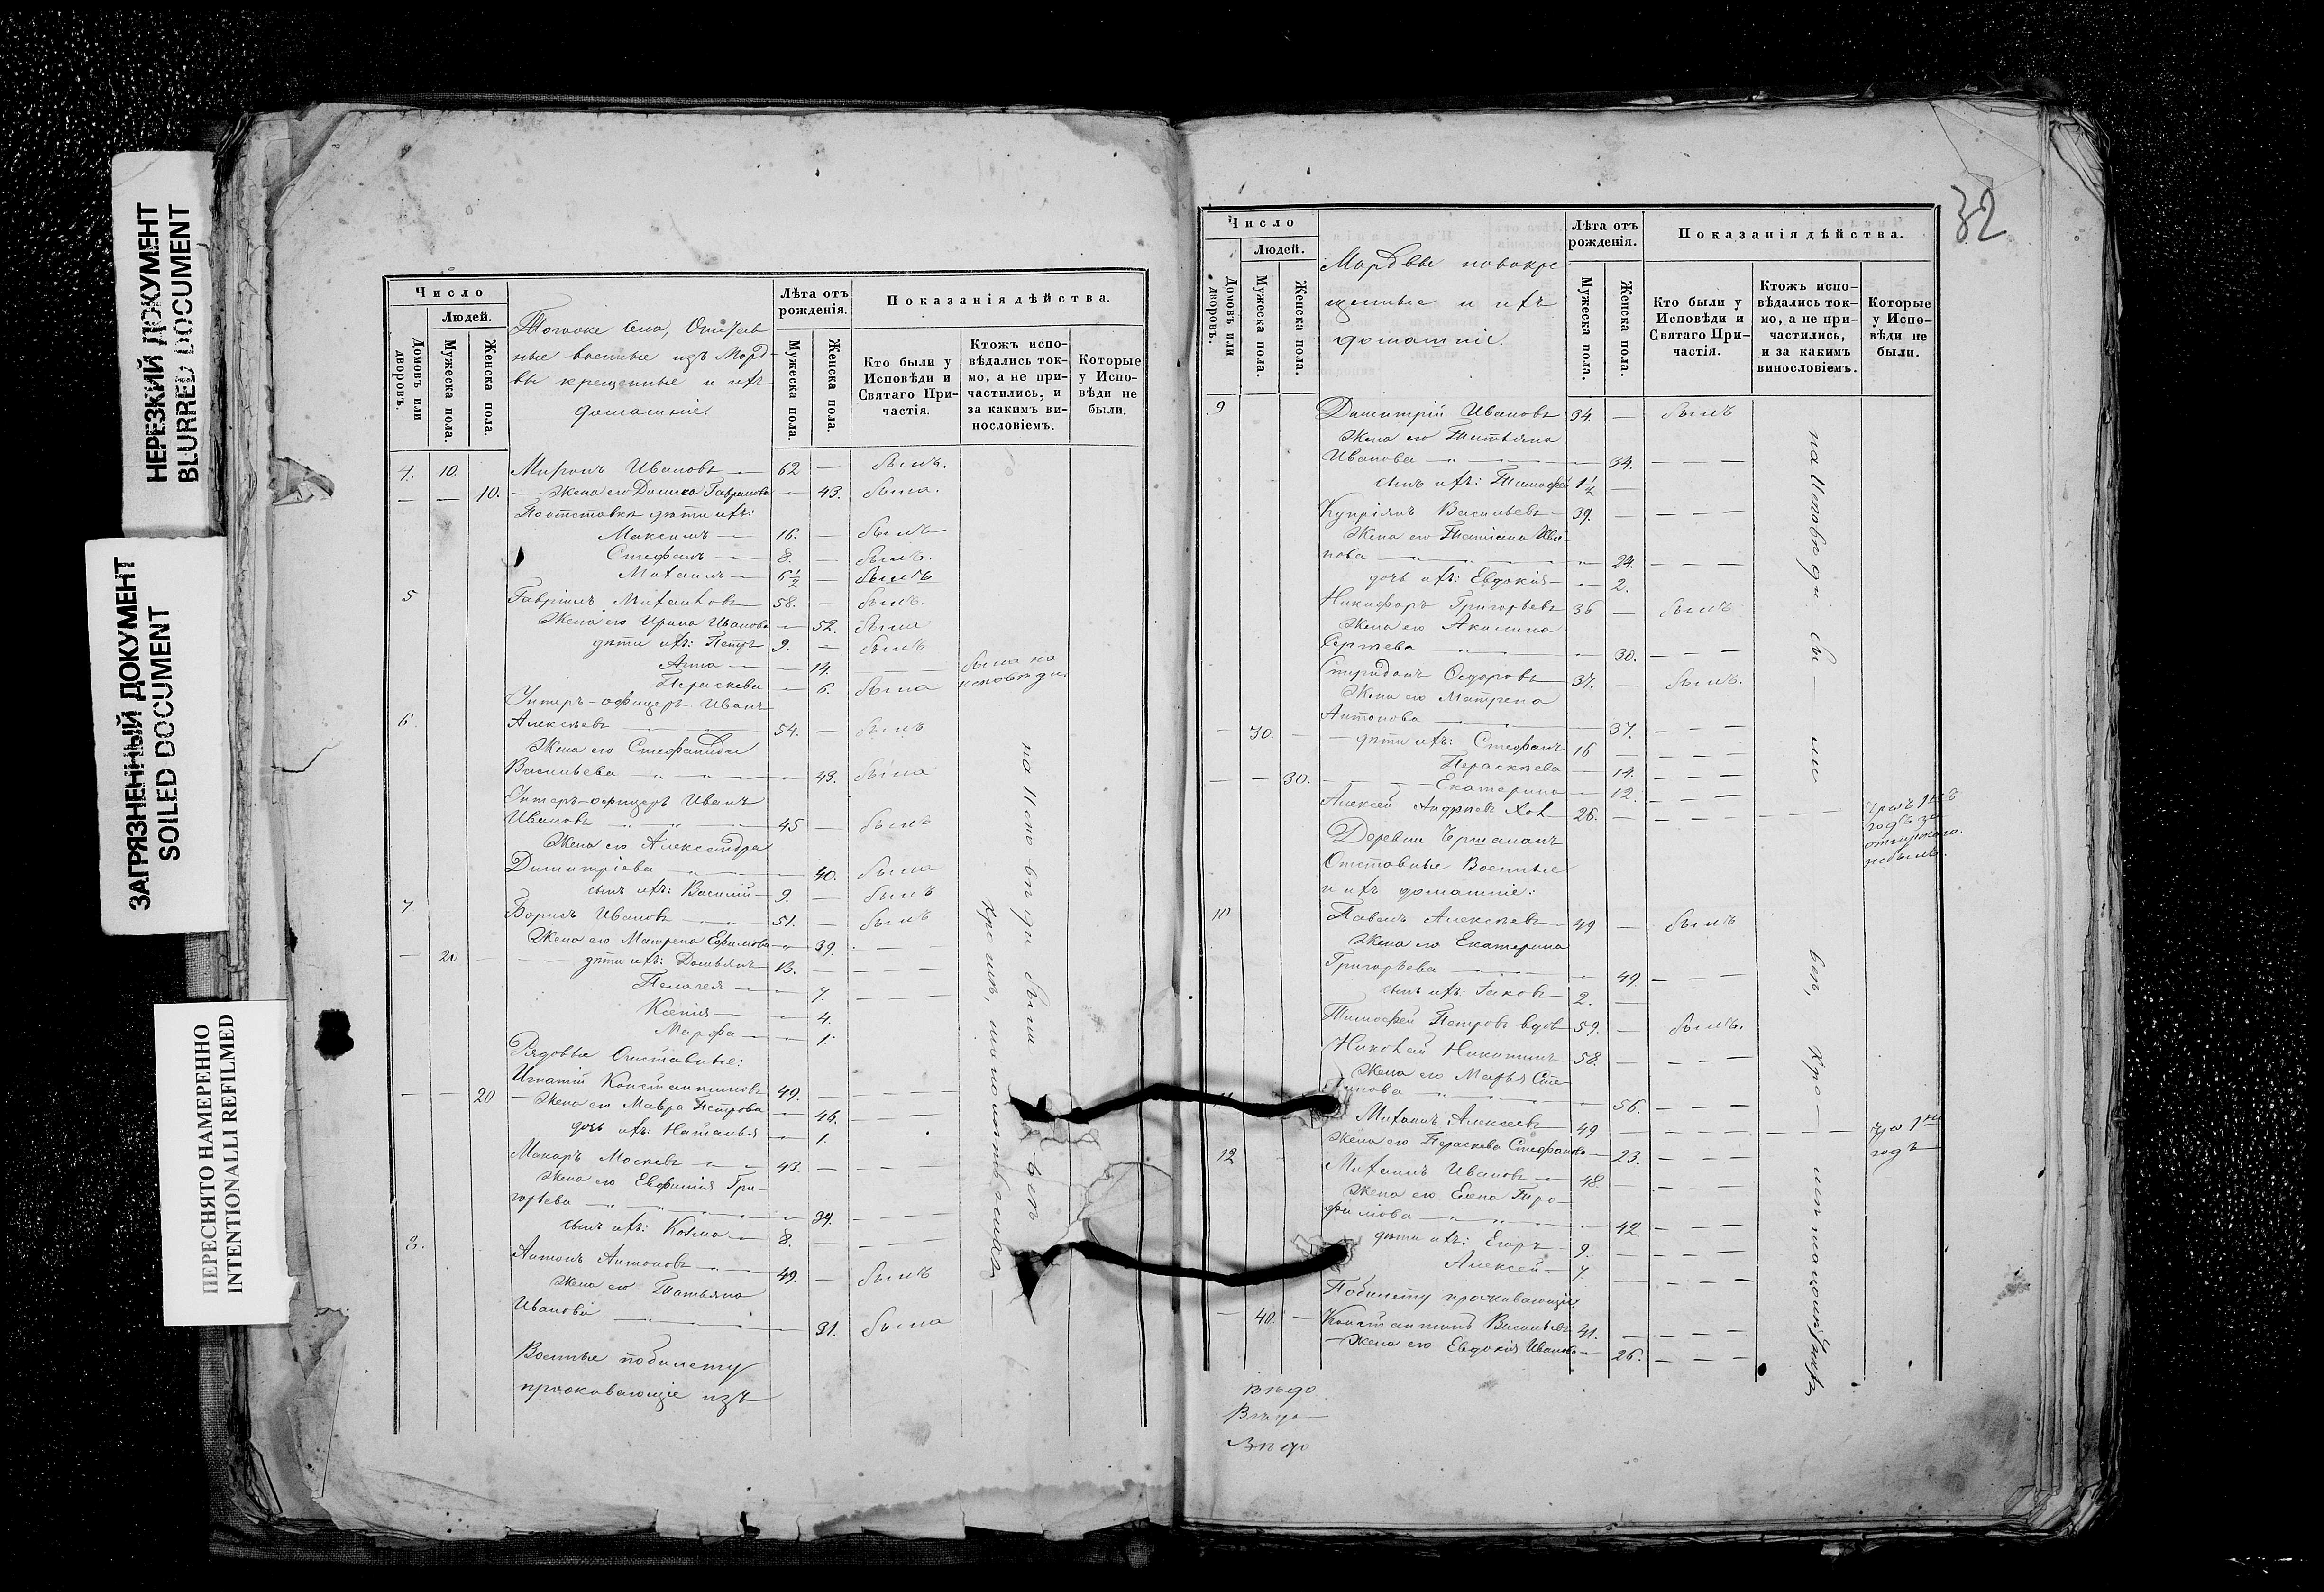 НЕРЕЗКИЙ ДОКУМЕНТ
BLURRED DOCUMENT
ЗАГРЯЗНЕННЫЙ ДОКУМЕНТ
SOILED DOCUMENT
ПЕРЕСНЯТО НАМЕРЕННО
INTENTIONALLI REFILMED
Число
Людей.
Домовъ или дворовъ.
Мужеска пола.
Женска пола.
Тогоже села, Отстав
ные военные изъ Морд-
вы крещенные и ихъ
домашніе.
Лѣта отъ рожденія.
Мужеска пола.
Женска пола.
Показанія дѣйства.
Кто были у Исповѣди и Святаго При-частія.
Ктожъ испо-вѣдались ток-мо, а не при-частились, и за какимъ ви-нословіемъ.
Которые у Испо-вѣди не были.
4. 10. Миронъ Ивановъ 62 — былъ.
— — 10. Жена его Гаврилова — 43. была.
дѣти ихъ:
Максимъ 16. — былъ
Стефанъ 8. — былъ.
Михаилъ 6½ — былъ
5 Гавріилъ Михайловъ 58. — былъ.
Жена его Ирина Иванова — 52. была
дѣти ихъ: Петръ 9. — былъ
Анна — 14. — была на
Параскева — 6. была исповѣди.
Унтеръ-офицеръ Иванъ
6 Алексѣевъ 54. — былъ
Жена его Стефанида
Васильева — 43. была
Унтеръ-офицеръ Иванъ
Ивановъ 45 — былъ
Жена его Александра
Димитріева — 40. была
сынъ ихъ: Василій 9. — былъ
7 Борисъ Ивановъ 51. — былъ
Жена его Матрена Ефимова — 39. — —
— 20 — дѣти ихъ: Демьянъ 13. — — —
Пелагея — 7. — — —
Ксенія — 4.
Марфа — 1.
Рядовые Отставные:
Игнатій Константиновъ 49. — — —
— — 20 Жена его Мавра Петрова — 46. — — —
дочь ихъ: Наталья — 1.
Макаръ Мосѣевъ 43. — — —
Жена его Евфимія Гри-
горьева — 34. — — —
сынъ ихъ: Козма 8. — — —
8. Антонъ Антоновъ 49. — былъ
Жена его Татьяна
Иванова — 31. была
Военные побилету
проживающіе изъ
на Исповѣди были всѣ
кромѣ, малолѣтнихъ
32
Число
Людей.
Домовъ или дворовъ.
Мужеска пола.
Женска пола.
Мордвы новокре
щенные и ихъ
домашніе.
Лѣта отъ рожденія.
Мужеска пола.
Женска пола.
Показанія дѣйства.
Кто были у Исповѣди и Святаго При-частія.
Ктожъ испо-вѣдались ток-мо, а не при-частились, и за какимъ винословіемъ.
Которые у Испо-вѣди не были.
9 Димитрій Ивановъ 34. — былъ
Жена его Татьяна
Иванова — 34. — — —
сынъ ихъ: Тимофей 1½ —
Купріянъ Васильевъ 39. — — — —
Жена его Татіана Ива-
нова — 24. — — —
дочь ихъ: Евдокія — 2.
Никифоръ Григорьевъ 36 — былъ
Жена его Акилина
Сергѣева — 30. — — —
Спиридонъ Федоровъ 37. — былъ.
Жена его Матрена
Антонова — 37. — — —
— 30. — дѣти ихъ: Стефанъ 16 — — — —
Параскѣева — 14. — — —
— — 30. Екатерина — 12. — — —
Алексѣй Андреевъ Хол 26. — — — —
Деревни
Отставные Военные
и ихъ домашніе:
10 Павелъ Алексѣевъ 49 — былъ
Жена его Екатерина
Григорьева — 49. — — —
сынъ ихъ: Іаковъ 2. —
Тимофей Петровъ вдов 59. — былъ.
Николай Никитинъ 58. — — — —
Жена его Марья Сте-
панова — 56. — — —
11 Михаилъ Алексѣевъ 49 — — — —
Жена его Параскева Стефанова — 23. — — —
12 Михаилъ Ивановъ 48. — — — —
Жена его Елена
— 42. — — —
дѣти ихъ: Егоръ 9. — — — —
Алексѣй 7. — — — —
Побилету проживающіе
— 40. — Константинъ Васильевъ 41. — — — —
Жена его Евдокія Иванова — 26. — — —
на Исповѣди бы — ли всѣ, кро —
годъ за
небылъ.
годъ